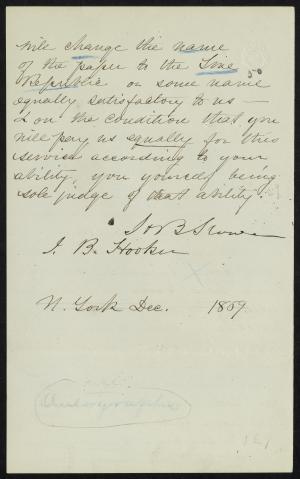 will change the name
of the paper to the True
Republic or some name 50
equally satisfactory to us —
2 on the condition that you
will pay us equally for this
service according to your
ability, you yourself being
sole judge of that ability.
H B Stowe
I. B. Hooker
N. York Dec. 1869